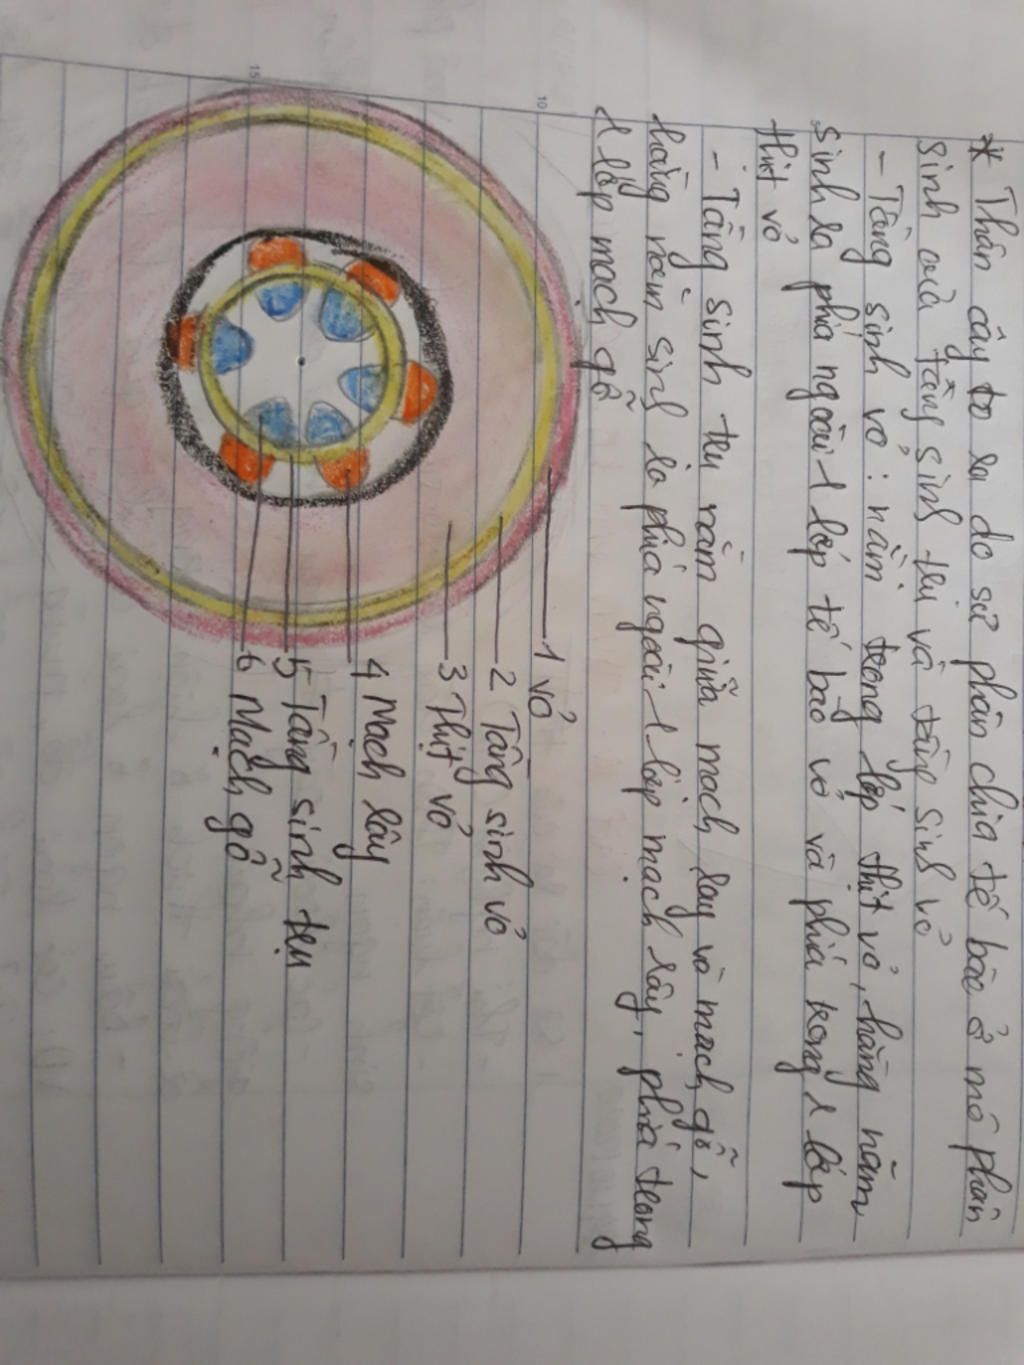 * Thân cây to ra do sự phân chia tế bào ở mô phân
sinh của tầng sinh trụ và tầng sinh vỏ
- Tầng sinh vỏ: nằm trong lớp thịt vỏ, hằng năm
sinh ra phía ngoài 1 lớp tế bào vỏ và phía trong 1 lớp
thịt vỏ
- Tầng sinh trụ nằm giữa mạch rây và mạch gỗ,
hằng năm sinh ra phía ngoài 1 lớp mạch rây, phía trong
1 lớp mạch gỗ
10
15
1 vỏ
2 Tầng sinh vỏ
3 Thịt vỏ
4 Mạch rây
5 Tầng sinh trụ
6 Mạch gỗ